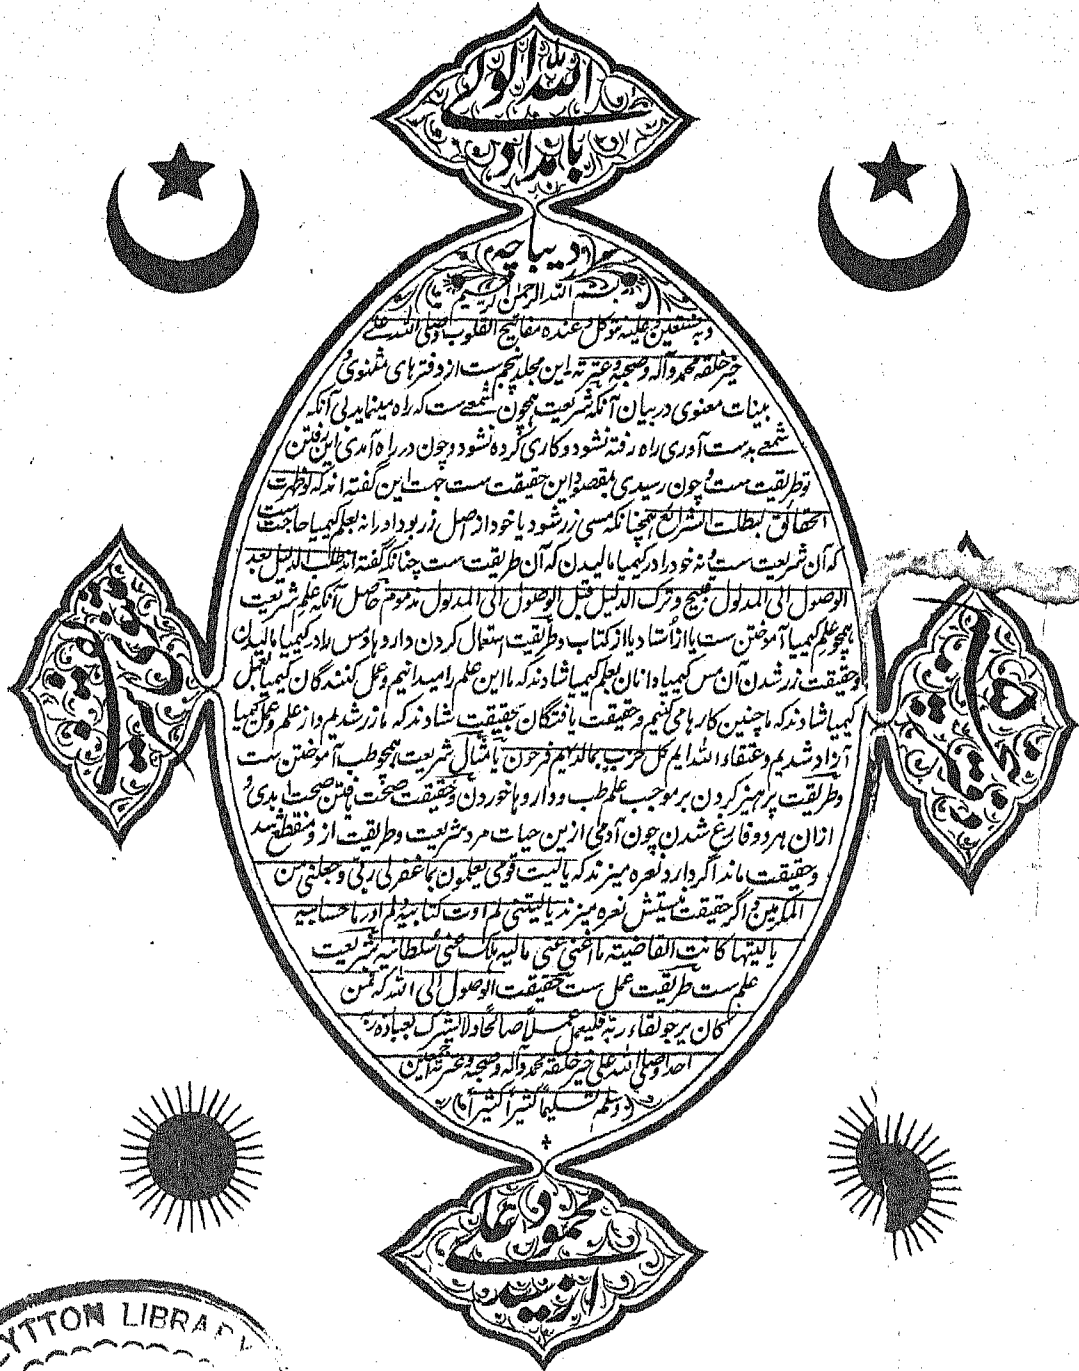 الله الولے
با مداد
دیباچه
بسم الله الرحمن الرحیم
وبه نستعین وعلیه نتوکل وعنده مفاتیح القلوب وصلی الله علے
خیر خلقه محمد وآله وصحبه وعترته این مجلد پنجم ست از دفترهای مثنوی و
بینات معنوی در بیان آنکه شریعت همچون شمعے ست که راه مینماید بی آنکه
شمعے بدست آوری راه رفته نشود وکاری کرده نشود وچون در راه آمدی این رفتن
تو طریقت ست و چون رسیدی بمقصود این حقیقت ست جهت این گفته اند که لو ظهرت
الحقائق لبطلت الشرائع همچنانکه مسی زر شود یا خود از اصل زر بود او را نه بعلم کیمیا حاجت ست
که آن شریعت ست و نه خود را در کیمیا مالیدن که آن طریقت ست چنانکه گفته اند طلب الدلیل بعد
الوصول الی المدلول قبیح وترک الدلیل قبل الوصول الی المدلول مذموم حاصل آنکه علم شریعت
همچو علم کیمیا آموختن ست یا از استاد یا از کتاب و طریقت استعمال کردن داروها و مس را در کیمیا مالیدن
وحقیقت زر شدن آن مس کیمیا دانان بعلم کیمیا شادند که ما این علم را میدانیم وعمل کنندگان کیمیا بعمل
کیمیا شادند که ما چنین کارها می کنیم وحقیقت یافتگان بحقیقت شادند که ما زر شدیم و از علم و عمل کیمیا
آزاد شدیم و عتقاء الله ایم کل حزب بما لدیهم فرحون یا مثال شریعت همچو طب آموختن ست
و طریقت پرهیز کردن بر موجب علم طب و داروها خوردن و حقیقت صحت یافتن صحت ابدی و
ازان هر دو فارغ شدن چون آدمی ازین حیات مرد شریعت و طریقت ازو منقطع شد
وحقیقت ماند اگر دارد نعره میزند که یا لیت قومی یعلمون بما غفر لی ربی وجعلنی من
المکرمین و اگر حقیقت نیستش نعره میزند یا لیتنی لم اوت کتابیه ولم ادر ما حسابیه
یا لیتها کانت القاضیته ما اغنی عنی مالیه هلک عنی سلطانیه شریعت
علم ست طریقت عمل ست حقیقت الوصول الی الله که فمن
کان یرجو لقاء ربه فلیعمل عملاً صالحاً ولا یشرک بعبادة ربه
احدا وصلی الله علی خیر خلقه محمد وآله وصحبه وعترته اجمعین
وسلم تسلیماً کثیراً کثیراً
LYTTON LIBRARY